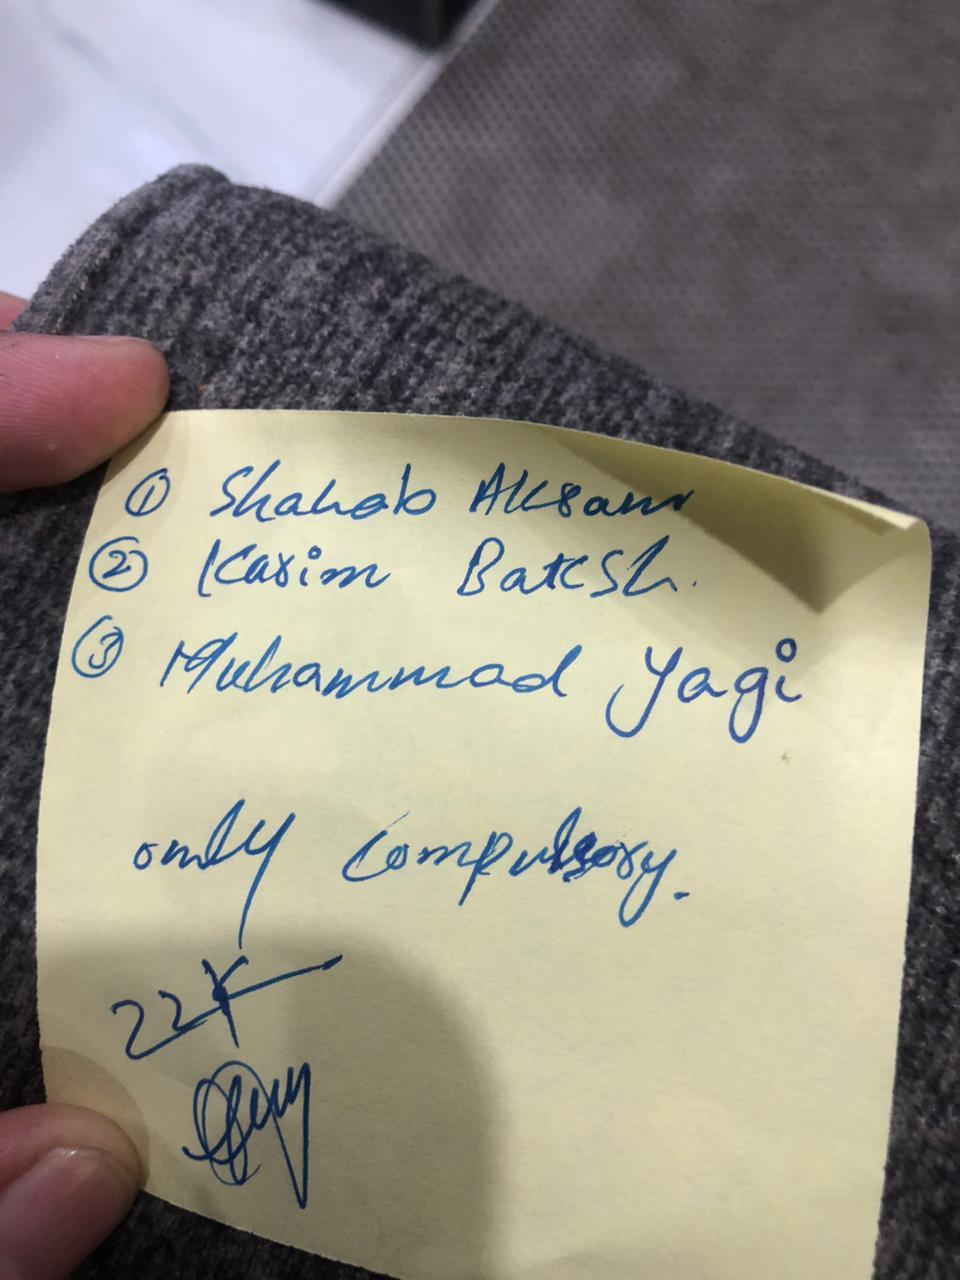 ① Shahab Aksam
② Karim Baksh.
③ Muhammad Yagi
only Compulsory.
22K